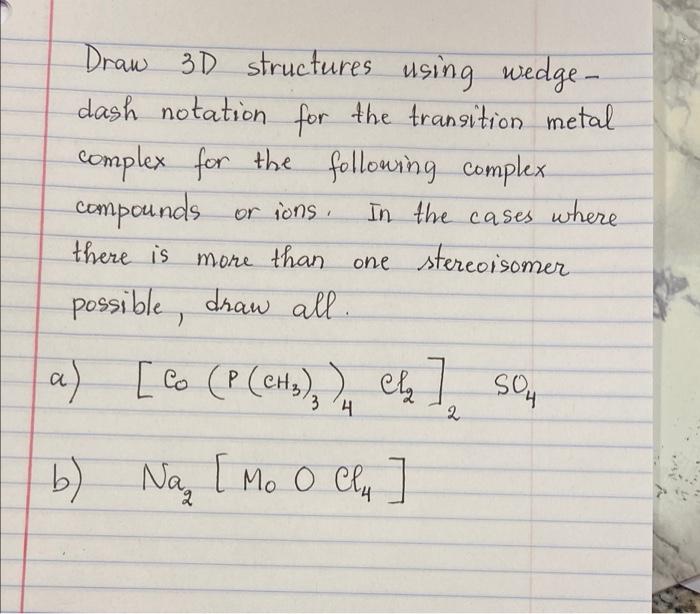 Draw 3D structures using wedge-
dash notation for the transition metal
complex for the following complex
compounds or ions. In the cases where
there is more than one stereoisomer
possible, draw all.
a) [Co (P(CH₃)₃)₄ Cl₂]₂ SO₄
b) Na₂ [Mo O Cl₄]